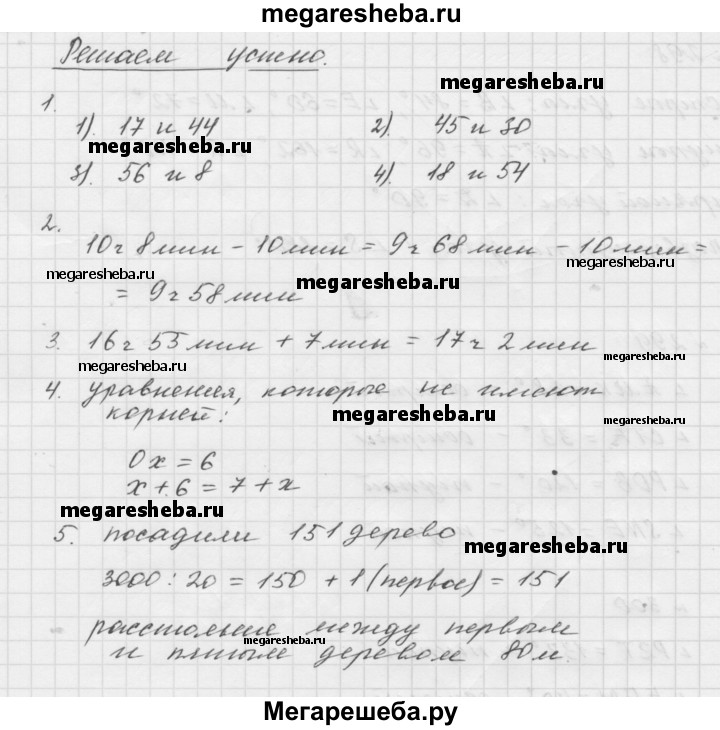 megaresheba.ru
Решаем устно.
megaresheba.ru
1.
1). 17 и 44 2). 45 и 30
megaresheba.ru
megaresheba.ru
3). 56 и 8 4). 18 и 54
2.
10 ч 8 мин - 10 мин = 9 ч 68 мин - 10 мин =
megaresheba.ru
megaresheba.ru
megaresheba.ru
= 9 ч 58 мин
3. 16 ч 55 мин + 7 мин = 17 ч 2 мин
megaresheba.ru
megaresheba.ru
4. уравнения, которые не имеют
корней:
megaresheba.ru
megaresheba.ru
0x = 6
x + 6 = 7 + x
megaresheba.ru
5. посадили 151 дерево
megaresheba.ru
3000 : 20 = 150 + 1 (первое) = 151
расстояние между первым
megaresheba.ru
megaresheba.ru
и пятым деревом 80 м
Мегарешеба.ру